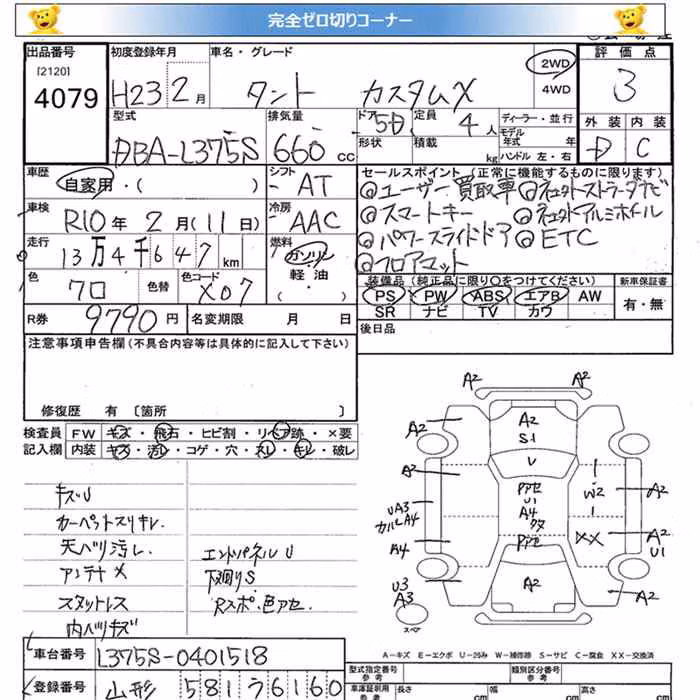 完全ゼロ切りコーナー
出品番号 初度登録年月 車名・グレード 2WD 評価点
[2120]
4079 H23 2月 タント カスタムX 4WD 3
型式 排気量 ドア 定員 ディーラー・並行 外装 内装
DBA-L375S 660cc 5D 4人 モデル年式 年 D C
形状 積載 kg ハンドル 左・右
車歴 シフト セールスポイント(正常に機能するものに限ります)
自家用・( ) AT ◎ユーザー買取車
車検 冷房 ◎スマートキー
R10年2月(11日) AAC ◎パワースライドドア ◎ETC
走行 燃料 ◎フロアマット
13万4千647km ガソリン
軽油
( )
色 色替 色コード 装備品(純正品に限り○をつけてください) 新車保証書
クロ X07 PS PW ABS エアB AW 有・無
SR ナビ TV カワ
R券 9790円 名変期限 月 日 後日品
注意事項申告欄(不具合内容等は具体的に記入して下さい)
修復歴 有〔箇所 〕
検査員 FW キズ・飛石・ヒビ割・リペア跡・×要
記入欄 内装 キズ・汚レ・コゲ・穴・スレ・キレ・破レ
キズU
カーペットスリキレ
天ベリ汚レ エンドパネルU
アンテナ× 下廻りS
スタットレス Rスポ・色アセ
内ヘリキズ
A2 A2
A2 A2
S1
A2 U
アセ U1 W2 A2
UA3 A4
カルA4
A4 XX A2
U1
U3 A2 A2
A3
スペア
A-キズ E-エクボ U-凹み W-補修跡 S-サビ C-腐食 XX-交換済
車台番号 L375S-0401518
型式指定番号 参考 類別区分番号 参考
登録番号 山形 581 う 6160
車庫証明用 参考 長さ cm 幅 cm 高さ cm